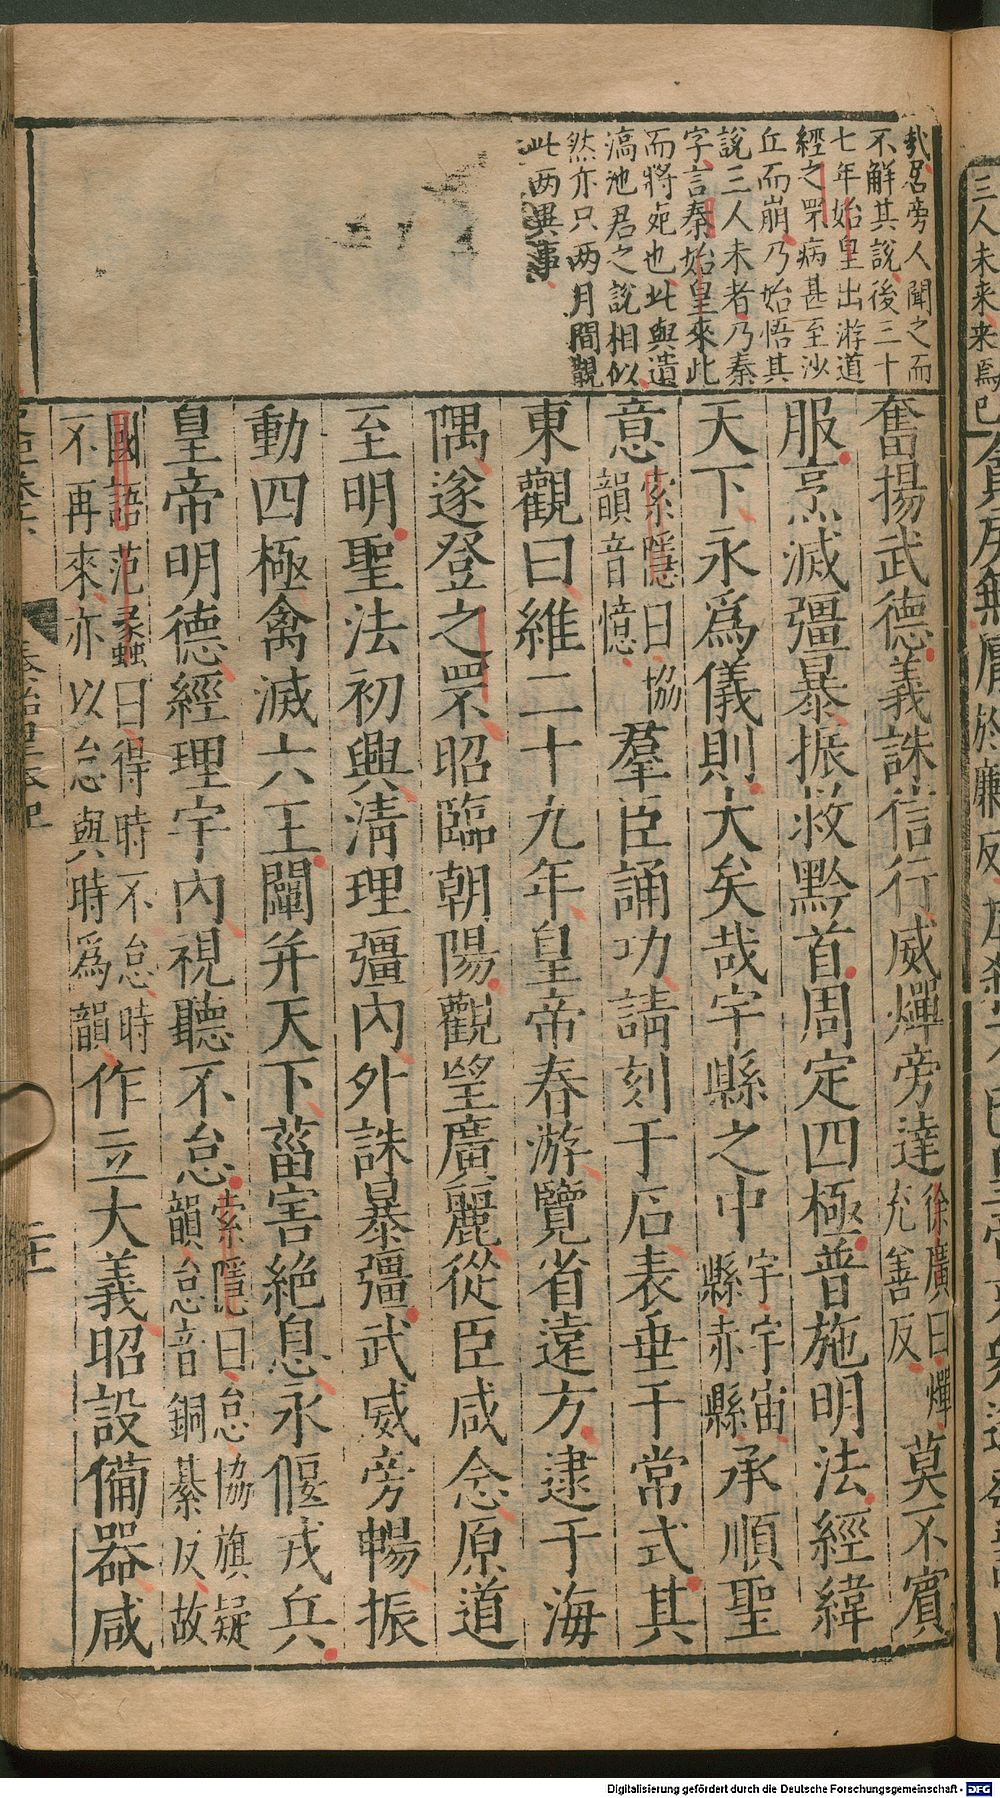 哉居旁人聞之而
不解其說後三十
七年始皇出游道
經之罘病甚至沙
丘而崩乃始悟其
說三人未者乃秦
字言秦始皇來此
而將死也此與遺
滈池君之說相似
然亦只两月間觀
此两異事
奮揚武德義誅信行威燀旁達徐廣曰燀充善反莫不賓
服烹滅彊暴振救黔首周定四極普施明法經緯
天下永爲儀則大矣哉宇縣之中宇宇宙縣赤縣承順聖
意索隱曰協韻音憶羣臣誦功請刻于石表垂于常式其
東觀曰維二十九年皇帝春游覽省遠方逮于海
隅遂登之罘昭臨朝陽觀望廣麗從臣咸念原道
至明聖法初興清理彊內外誅暴彊武威旁暢振
動四極禽滅六王闡并天下菑害絕息永偃戎兵
皇帝明德經理宇內視聽不怠索隱曰怠協旗疑韻怠音銅綦反故
國語范蠡曰得時不怠時不再來亦以怠與時爲韻作立大義昭設備器咸
秦始皇本紀
三人未来来爲巳
Digitalisierung gefördert durch die Deutsche Forschungsgemeinschaft - DFG